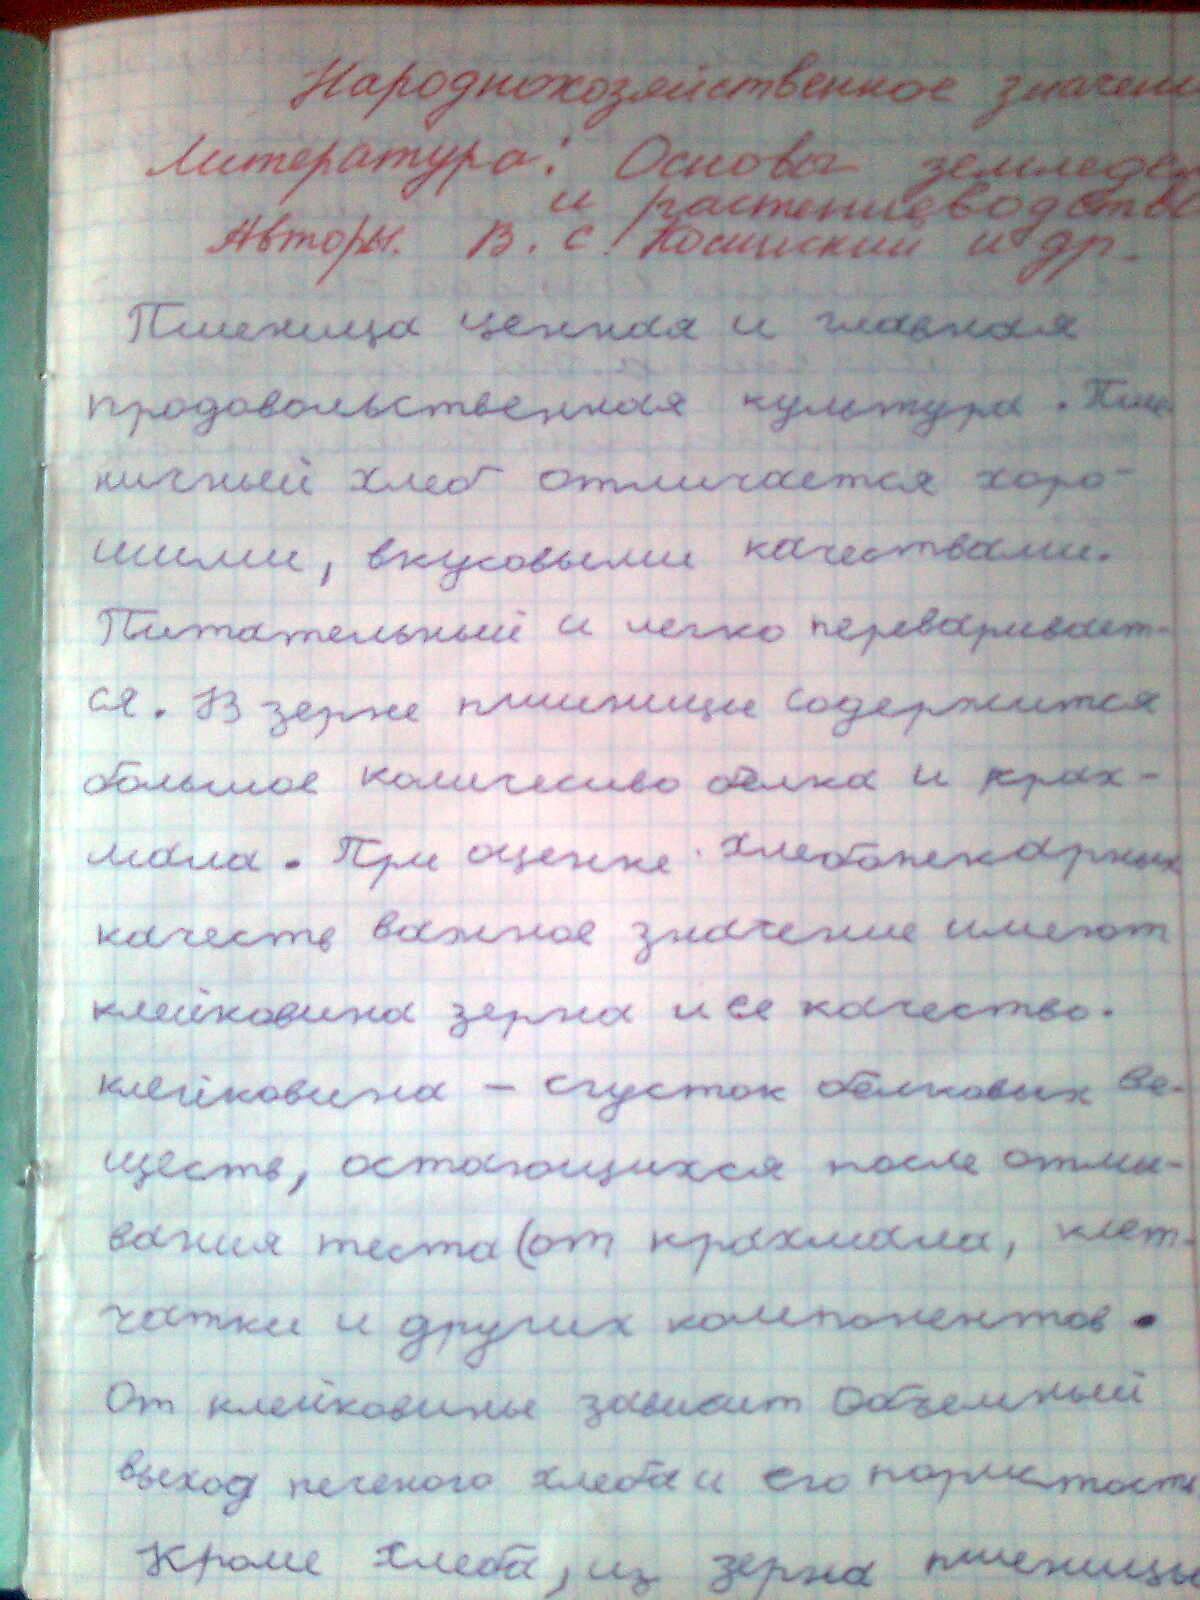 Народнохозяйственное значени
Литература: Основы земледел
и растениеводства
Авторы. В. С. Косинский и др.
Пшеница ценная и главная
продовольственная культура. Пше
ничный хлеб отличается хоро-
шими, вкусовыми качествами.
Питательный и легко переваривает-
ся. В зерне пшеницы содержится
большое количесиво белка и крах-
мала. При оценке хлебопекарных
качеств важное значение имеют
клейковина зерна и ее качество.
клейковина – сгусток белковых ве-
ществ, остающихся после отмы-
вания теста (от крахмала, клет-
чатки и других компонентов.
От клейковины зависит объемный
выход печеного хлеба и его пористость
Кроме хлеба, из зерна пшеницы